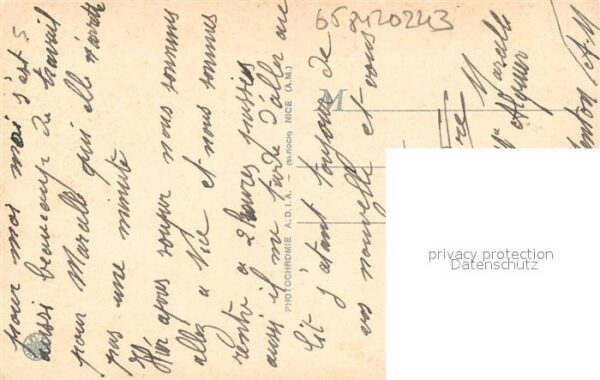 pour moi moi s'est
aussi beaucoup de travail
pour Marcelle qui elle n'arrête
pas une minute
Hier apres souper nous sommes
allés a Nice et nous sommes
rentré a 2 heures
aussi il me tarde d'aller au
lit j'attend toujours de
vos nouvelle et vous
PHOTOCHROMIE A.D.I.A. - (St-ROCH) NICE (A.M.)
M
Marcelle
6521120243
privacy protection
Datenschutz